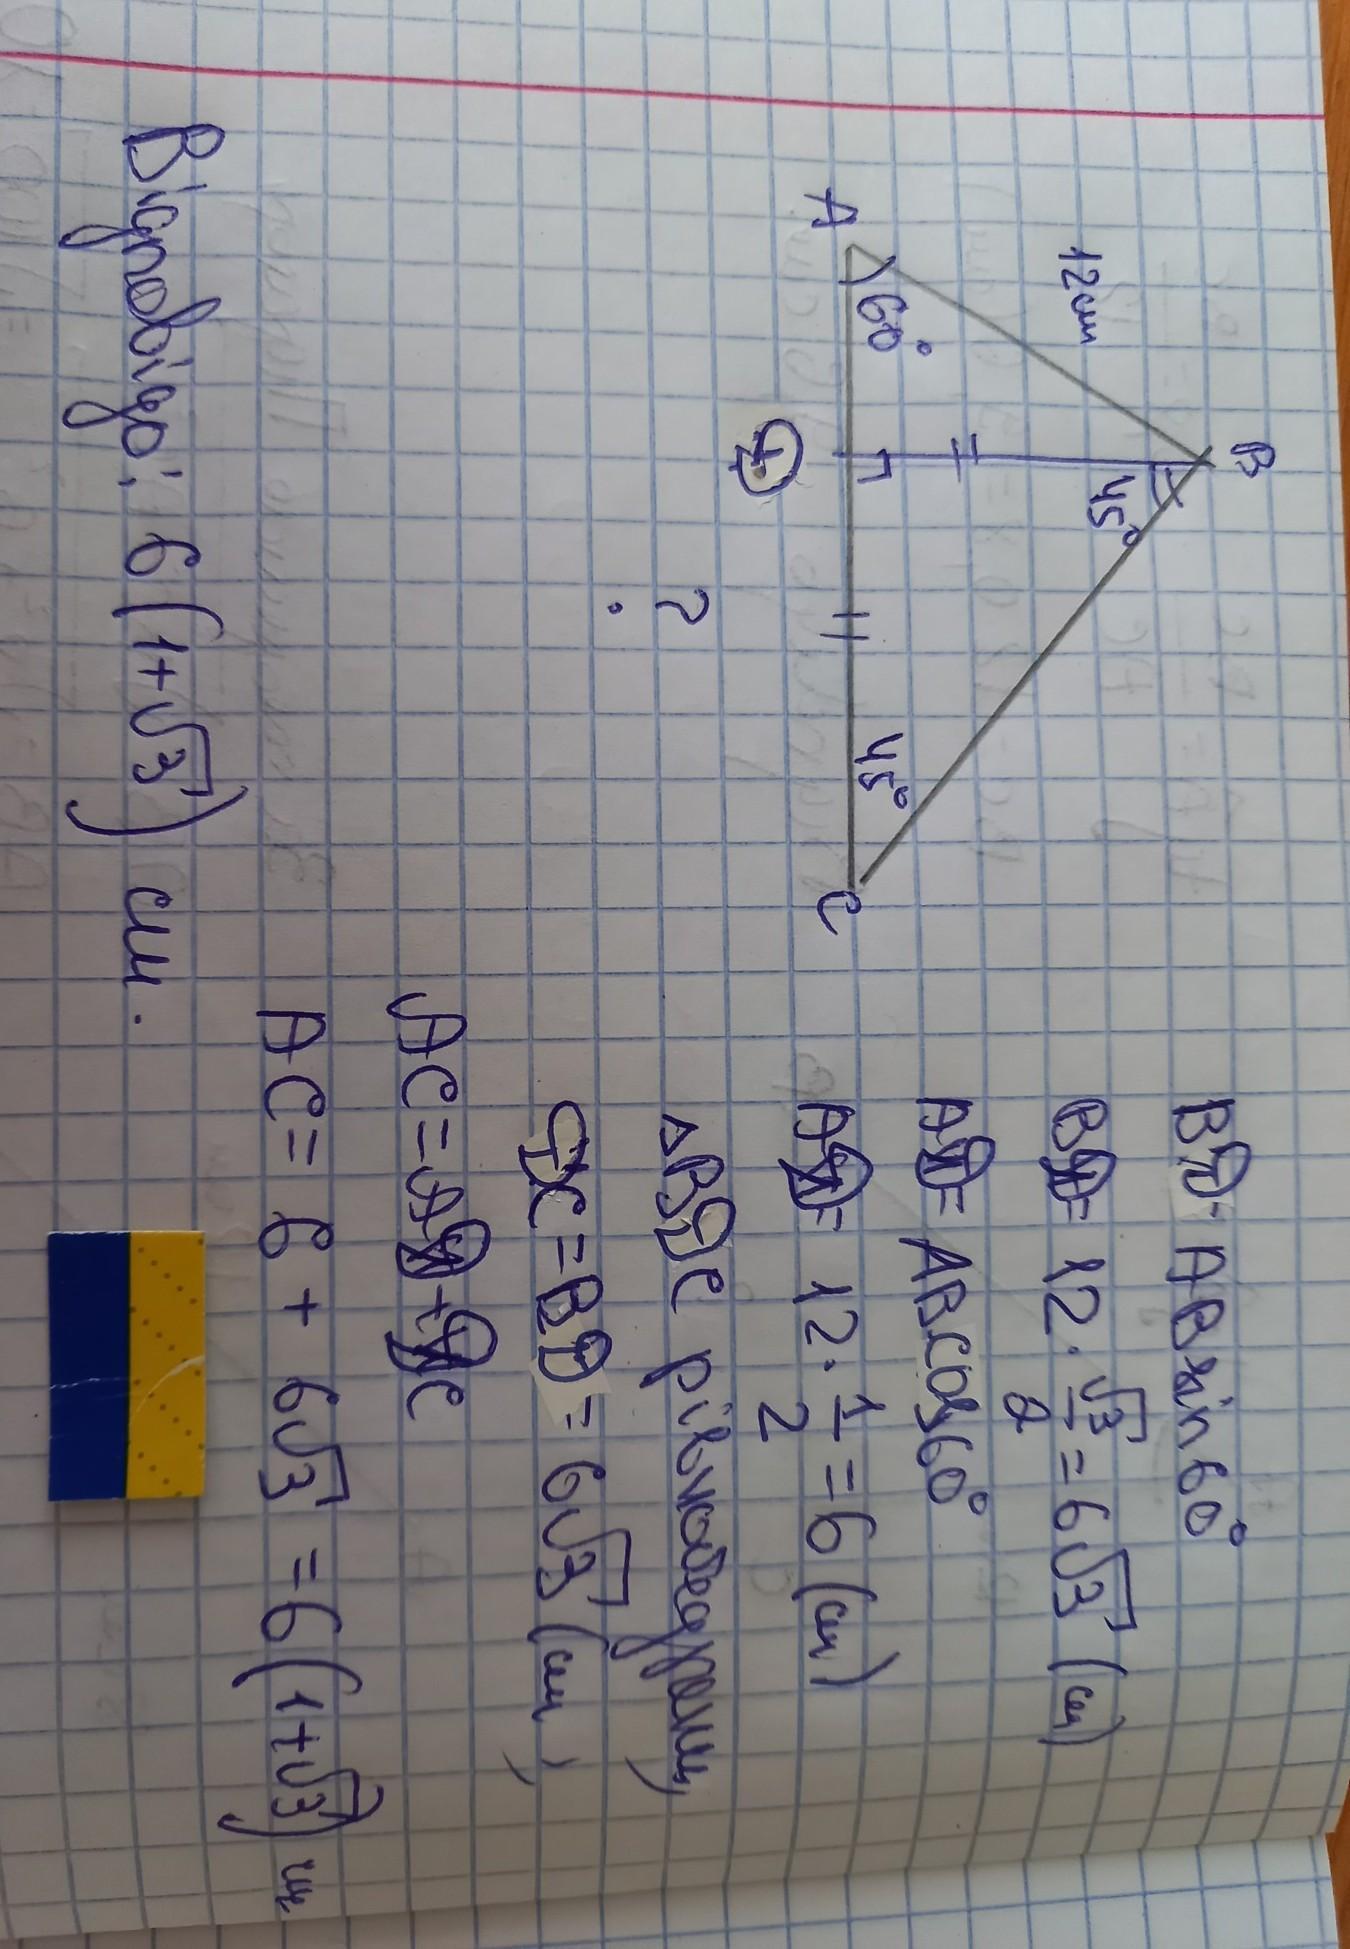 B
12см
45°
A
60°
45°
C
Д
?
BД = ABsin60°
BД = 12 · √3/2 = 6√3 (см)
AД = ABcos60°
AД = 12 · 1/2 = 6 (см)
△BДC рівнобедрений,
ДC = BД = 6√3 (см)
AC = AД + ДC
AC = 6 + 6√3 = 6(1+√3) см
Відповідь: 6(1+√3) см.